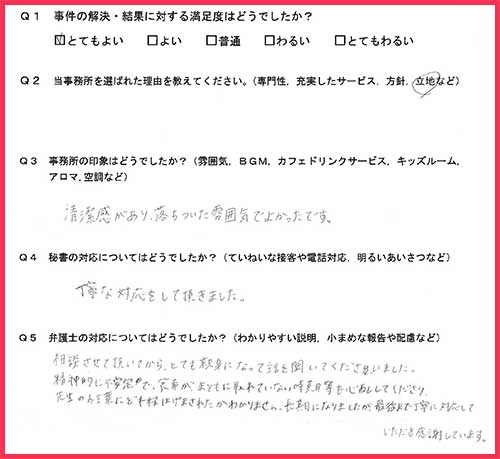 Q1 事件の解決・結果に対する満足度はどうでしたか？
☑とてもよい □よい □普通 □わるい □とてもわるい
Q2 当事務所を選ばれた理由を教えてください。(専門性，充実したサービス，方針，立地など)
Q3 事務所の印象はどうでしたか？（雰囲気，BGM，カフェドリンクサービス，キッズルーム，
アロマ，空調など）
清潔感があり、落ちついた雰囲気でよかったです。
Q4 秘書の対応についてはどうでしたか？（ていねいな接客や電話対応，明るいあいさつなど）
丁寧な対応をして頂きました。
Q5 弁護士の対応についてはどうでしたか？（わかりやすい説明，小まめな報告や配慮など）
相談させて頂いてから、とても親身になって話を聞いてくださいました。
精神的に不安定で、食事がまともに取れていない時期等を心配してくださり、
先生のお言葉にどれ程はげまされたかわかりません。長期になりましたが最後まで丁寧に対応して
いただき感謝しています。